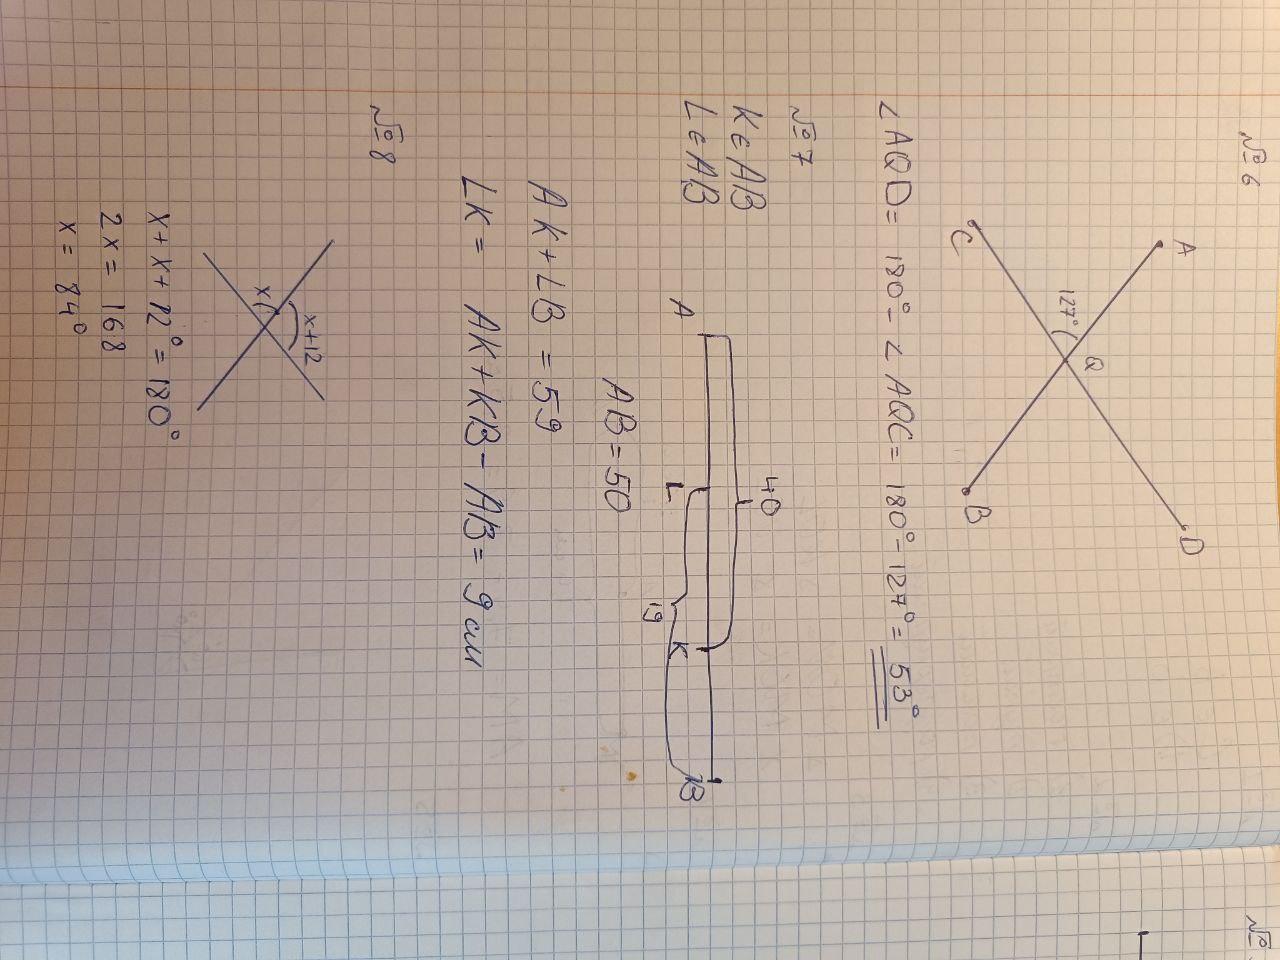 № 6
A
D
Q
127°
C
B
∠AQD = 180° - ∠AQC = 180° - 127° = 53°
№ 7
K ∈ AB
L ∈ AB
40
A
L
K
B
19
AB = 50
AK + LB = 59
LK = AK + KB - AB = 9 см
№ 8
x+12
x
x + x + 12° = 180°
2x = 168
x = 84°